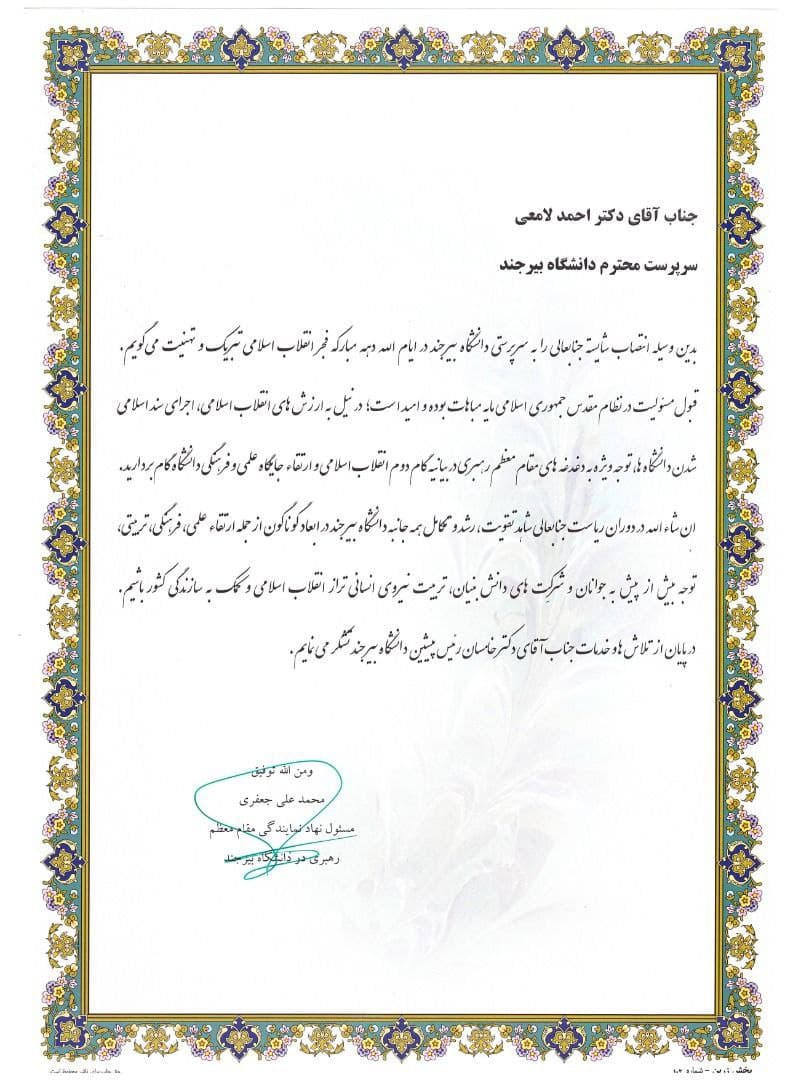 جناب آقای دکتر احمد لامعی
سرپرست محترم دانشگاه بیرجند
بدین وسیله انتصاب شایسته جنابعالی را به سرپرستی دانشگاه بیرجند در ایام الله دهه مبارکه فجر انقلاب اسلامی تبریک و تهنیت می‌گویم.
قبول مسئولیت در نظام مقدس جمهوری اسلامی مایه مباهات بوده و امید است؛ در نیل به ارزش های انقلاب اسلامی، اجرای سند اسلامی
شدن دانشگاه ها، توجه ویژه به دغدغه های مقام معظم رهبری در بیانیه گام دوم انقلاب اسلامی و ارتقاء جایگاه علمی و فرهنگی دانشگاه گام بردارید.
ان شاء الله در دوران ریاست جنابعالی شاهد تقویت، رشد و تکامل همه جانبه دانشگاه بیرجند در ابعاد گوناگون از جمله ارتقاء علمی، فرهنگی، تربیتی،
توجه بیش از پیش به جوانان و شرکت های دانش بنیان، تربیت نیروی انسانی تراز انقلاب اسلامی و کمک به سازندگی کشور باشیم.
در پایان از تلاش ها و خدمات جناب آقای دکتر خامسان رئیس پیشین دانشگاه بیرجند تشکر می نمایم.
ومن الله توفیق
محمد علی جعفری
مسئول نهاد نمایندگی مقام معظم
رهبری در دانشگاه بیرجند